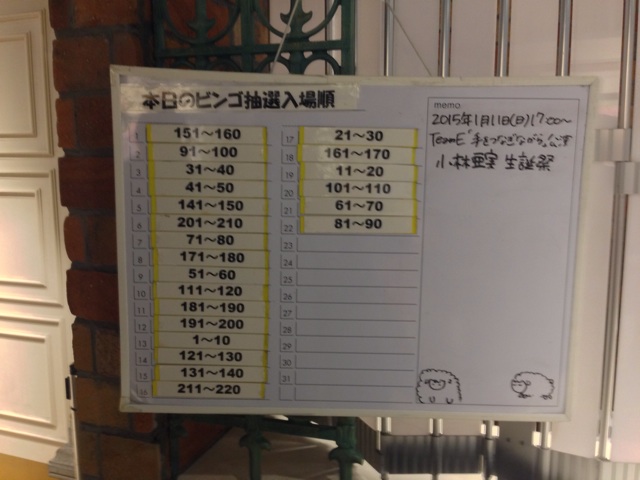 本日のビンゴ抽選入場順
1 151～160
2 91～100
3 31～40
4 41～50
5 141～150
6 201～210
7 71～80
8 171～180
9 51～60
10 111～120
11 181～190
12 191～200
13 1～10
14 121～130
15 131～140
16 211～220
17 21～30
18 161～170
19 11～20
20 101～110
21 61～70
22 81～90
23
24
25
26
27
28
29
30
31
memo
2015年1月11日(日)17:00～
TeamE「手をつなぎながら」公演
小林亜実 生誕祭